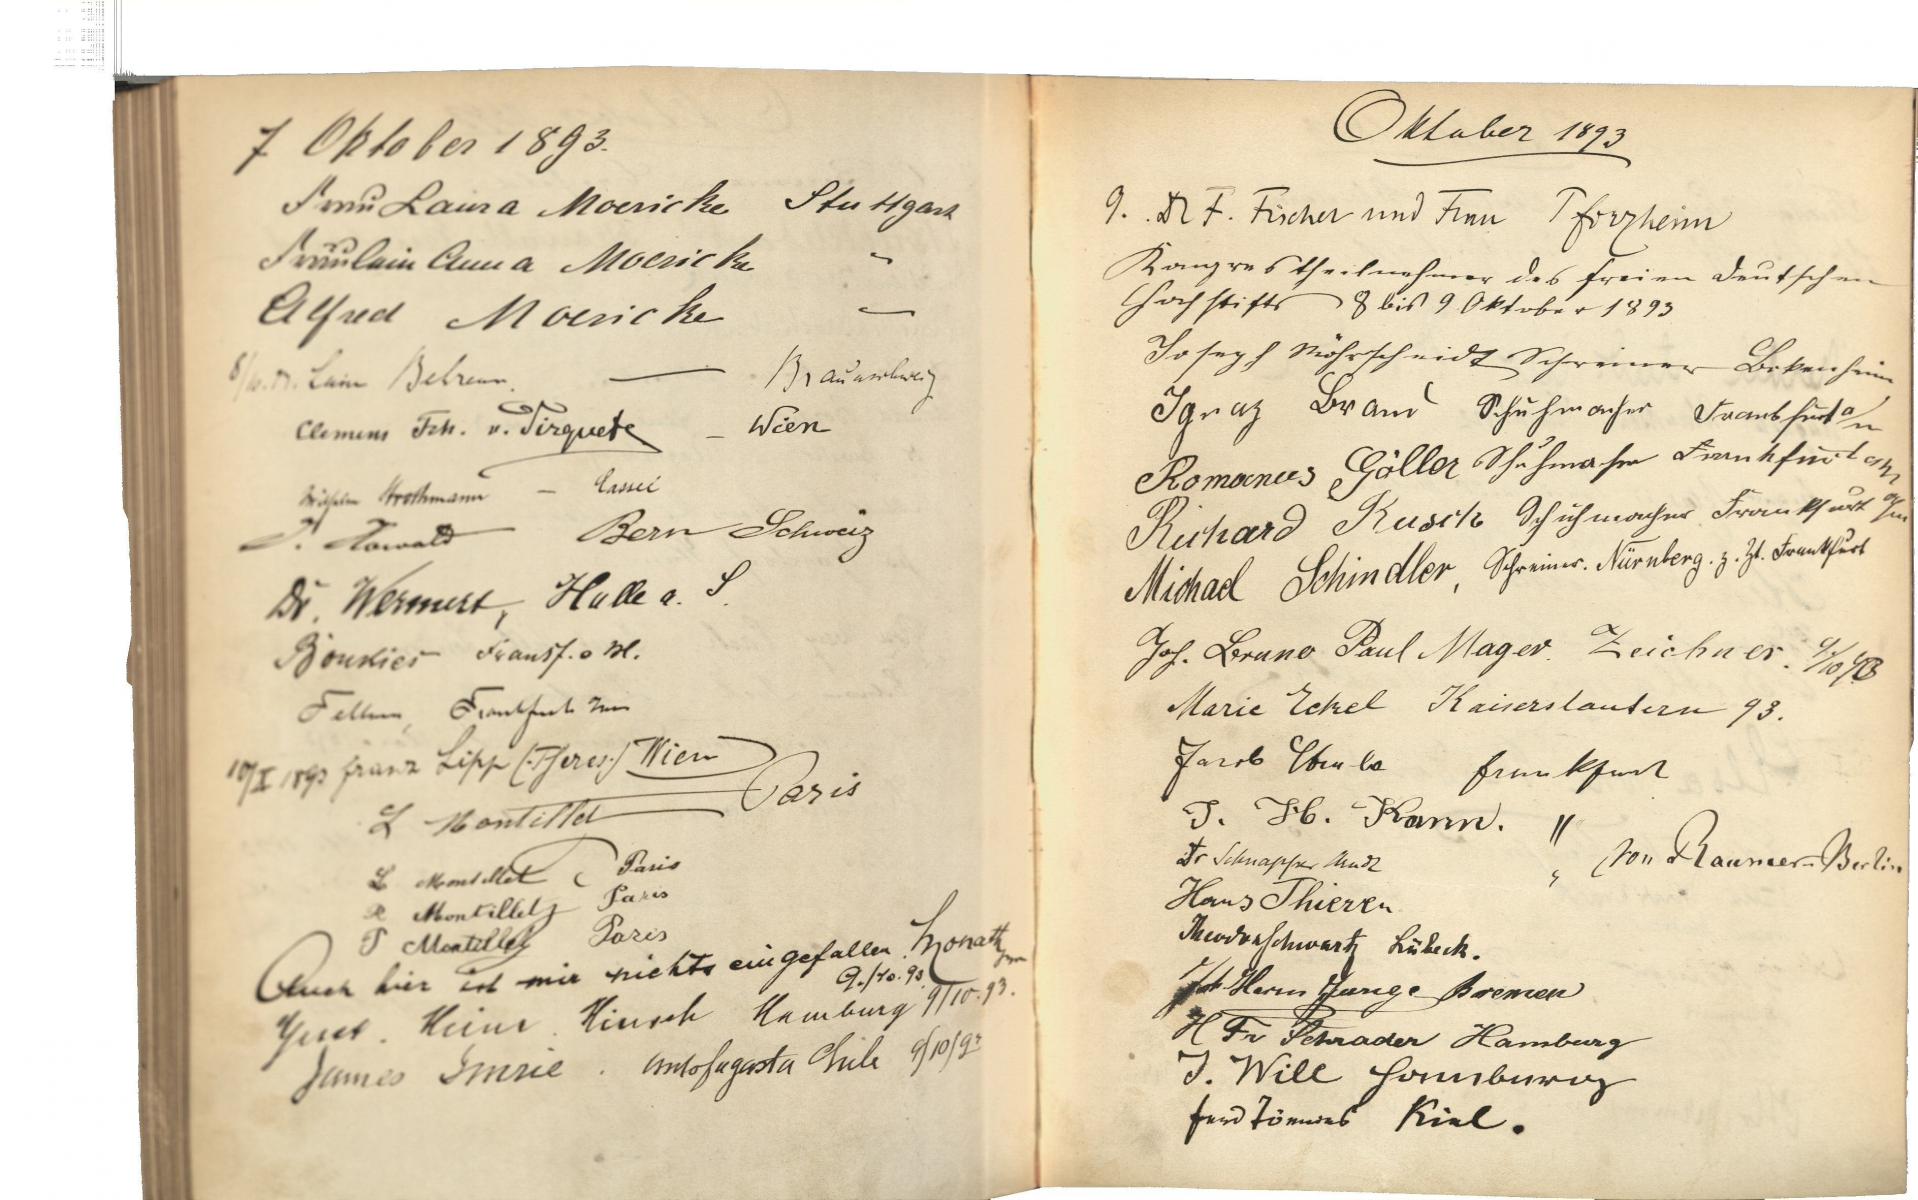 7 Oktober 1893.
Frau Laura Moericke Stuttgart
Fräulein Anna Moericke "
Alfred Moericke "
Braunschweig
Clemens Frh. v. Pirquet – Wien
Wilhelm Strothmann – Cassel
Howald Bern Schweiz
Dr. Wermert, Halle a. S.
Frankf. a M.
Frankfurt
10/X 1893 Franz Lipp (Theres.) Wien
L Montillet Paris
L Montillet Paris
R Montillet Paris
P Montillet Paris
Auch hier ist mir nichts eingefallen.
9./10.93
Heinr. Hinsch Hamburg 9/10.93.
James Imrie. Antofagasta Chile 9/10/93
Oktober 1893
9. Dr F. Fischer und Frau Pforzheim
Kongrestheilnehmer des freien deutschen
Hochstifts 8 bis 9 Oktober 1893
Joseph Möhrscheidt Schreiner Bokenheim
Ignaz Brand Schuhmacher Frankfurt a/m
Romanus Göller Schuhmacher Frankfurt a/M
Richard Kusch Schuhmacher Frankfurt a/m
Michael Schindler, Schreiner. Nürnberg. z. Zt. Frankfurt
Joh. Bruno Paul Mager. Zeichner. 9/10 93
Marie Eckel Kaiserslautern 93.
Jacob Frankfurt
J. H. Kann. "
Dr Schnapper Arndt " von Raumer-Berlin
Hans Thieren
Theodor Schwartz Lübeck.
Joh Herm Junge Bremen
H Fr Schrader Hamburg
J. Will Hamburg
Ferd Tönnies Kiel.